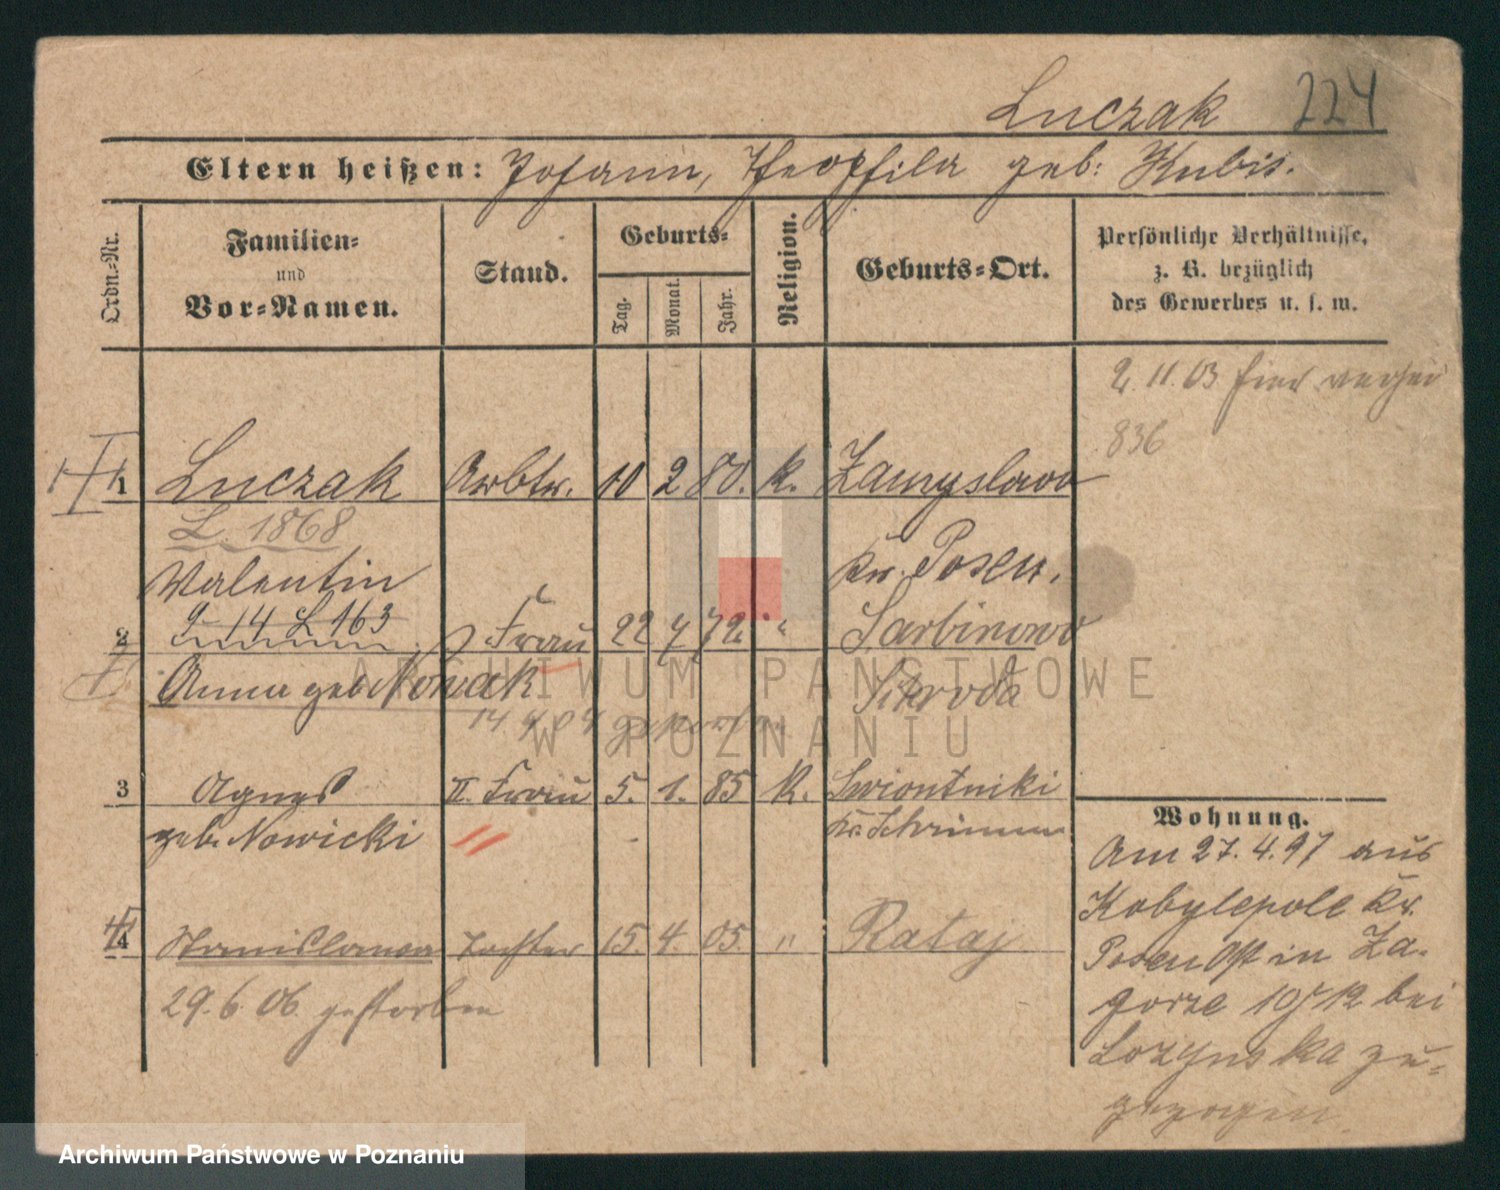 Luczak 224
Eltern heißen: Johann, Theophila geb: Kubis.
Ordn.-Nr.
Familien-
und
Vor-Namen.
Stand.
Geburts-
Tag.
Monat.
Jahr.
Religion.
Geburts-Ort.
Persönliche Verhältnisse,
z. B. bezüglich
des Gewerbes u. s. w.
2. 11. 03 hier
836
1 Luczak Arbtr. 10 2 80. k. Zamyslowo
L. 1868
Valentin Kr. Posen.
14 L 163
2 Frau 22 7 72. " Sarbinowo
Anna geb. Nowak Schroda
14 4 04 gestorben
3 Agnes II. Frau 5. 1. 85 K. Swiontniki
geb. Nowicki Kr. Schrimm
4 Stanislawa Tochter 15. 4. 05. " Rataj
29. 6. 06. gestorben
Wohnung.
Am 27. 4. 97 aus
Kobylepole Kr.
Posen Ost in Za-
gorze 10/12 bei
Lozynska zu-
gezogen.
ARCHIWUM PAŃSTWOWE
W POZNANIU
Archiwum Państwowe w Poznaniu